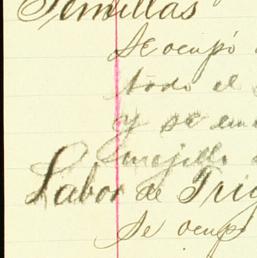 Semillas
Se ocupó
todo el
y se em
Labor de Trig
Se ocupó